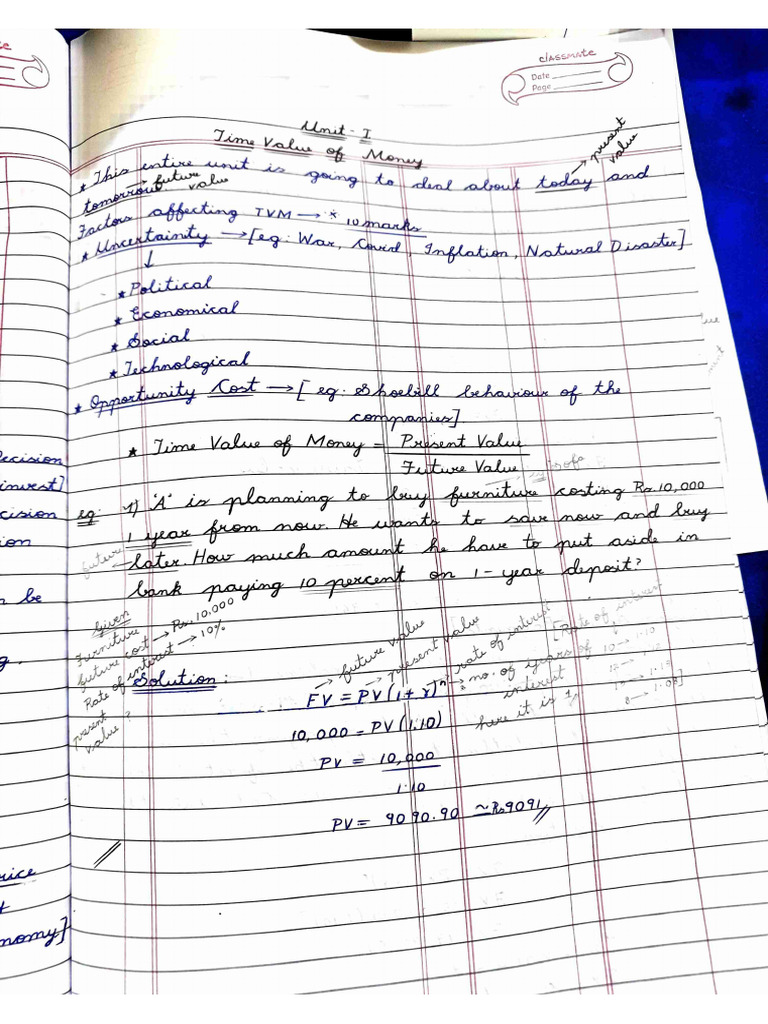 classmate
Date
Page
Unit-I
Time Value of Money
present value
* This entire unit is going to deal about today and
future value
tomorrow
Factors affecting TVM → * 10 marks
* Uncertainity → [eg: War, Covid, Inflation, Natural Disaster]
↓
* Political
* Economical
* Social
* Technological
* Opportunity Cost → [eg: Shoebill behaviour of the
companies].
* Time Value of Money = Present Value
Future Value
eg: 1) 'A' is planning to buy furniture costing Rs.10,000
1 year from now. He wants to save now and buy
future
later. How much amount he have to put aside in
bank paying 10 percent on 1-year deposit?
Given
Furniture
future cost → Rs.10,000
Rate of interest → 10%
present value ?
Solution:
→ future value
→ present value
→ rate of interest
FV = PV(1+r)ⁿ → no. of years of
interest
here it is 1
[Rate of interest
10 → 1.10
8 → 1.08]
10,000 = PV(1.10)
PV = 10,000
1.10
PV = 9090.90 ~Rs.9091//
ecision
invest]
cision
ion
be
rice
nomy]